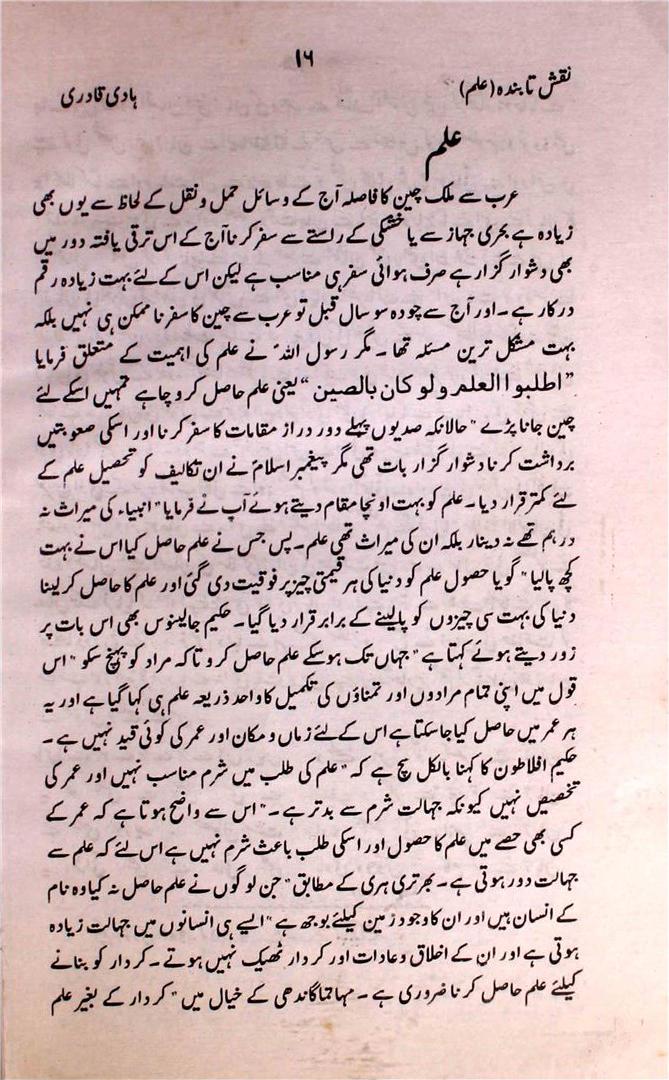 ۱۶
نقش تابندہ (علم)
ہادی قادری
علم
عرب سے ملک چین کا فاصلہ آج کے وسائل حمل و نقل کے لحاظ سے یوں بھی
زیادہ ہے بحری جہاز سے یا خشکی کے راستے سے سفر کرنا آج کے اس ترقی یافتہ دور میں
بھی دشوار گزار ہے صرف ہوائی سفر ہی مناسب ہے لیکن اس کے لئے بہت زیادہ رقم
درکار ہے ۔ اور آج سے چودہ سو سال قبل تو عرب سے چین کا سفر نا ممکن ہی نہیں بلکہ
بہت مشکل ترین مسئلہ تھا ۔ مگر رسول اللہؐ نے علم کی اہمیت کے متعلق فرمایا
”اطلبوا العلم ولو کان بالصین“ یعنی علم حاصل کرو چاہے تمہیں اسکے لئے
چین جانا پڑے“ حالانکہ صدیوں پہلے دور دراز مقامات کا سفر کرنا اور اسکی صعوبتیں
برداشت کرنا دشوار گزار بات تھی مگر پیغمبر اسلامؐ نے ان تکالیف کو تحصیل علم کے
لئے کمتر قرار دیا ۔ علم کو بہت اونچا مقام دیتے ہوئے آپ نے فرمایا ”انبیاء کی میراث نہ
درہم تھے نہ دینار بلکہ ان کی میراث تھی علم ۔ پس جس نے علم حاصل کیا اس نے بہت
کچھ پالیا“ گویا حصول علم کو دنیا کی ہر قیمتی چیز پر فوقیت دی گئی اور علم کا حاصل کر لینا
دنیا کی بہت سی چیزوں کو پالینے کے برابر قرار دیا گیا ۔ حکیم جالینوس بھی اس بات پر
زور دیتے ہوئے کہتا ہے ”جہاں تک ہوسکے علم حاصل کرو تاکہ مراد کو پہنچ سکو“ اس
قول میں اپنی تمام مرادوں اور تمناؤں کی تکمیل کا واحد ذریعہ علم ہی کہا گیا ہے اور یہ
ہر عمر میں حاصل کیا جاسکتا ہے اس کے لئے زماں و مکان اور عمر کی کوئی قید نہیں ہے ۔
حکیم افلاطون کا کہنا بالکل سچ ہے کہ ”علم کی طلب میں شرم مناسب نہیں اور عمر کی
تخصیص نہیں کیونکہ جہالت شرم سے بدتر ہے ۔“ اس سے واضح ہوتا ہے کہ عمر کے
کسی بھی حصے میں علم کا حصول اور اسکی طلب باعث شرم نہیں ہے اس لئے کہ علم سے
جہالت دور ہوتی ہے ۔ بھرتری ہری کے مطابق ”جن لوگوں نے علم حاصل نہ کیا وہ نام
کے انسان ہیں اور ان کا وجود زمین کیلئے بوجھ ہے“ ایسے ہی انسانوں میں جہالت زیادہ
ہوتی ہے اور ان کے اخلاق و عادات اور کردار ٹھیک نہیں ہوتے ۔ کردار کو بنانے
کیلئے علم حاصل کرنا ضروری ہے ۔ مہاتما گاندھی کے خیال میں ”کردار کے بغیر علم